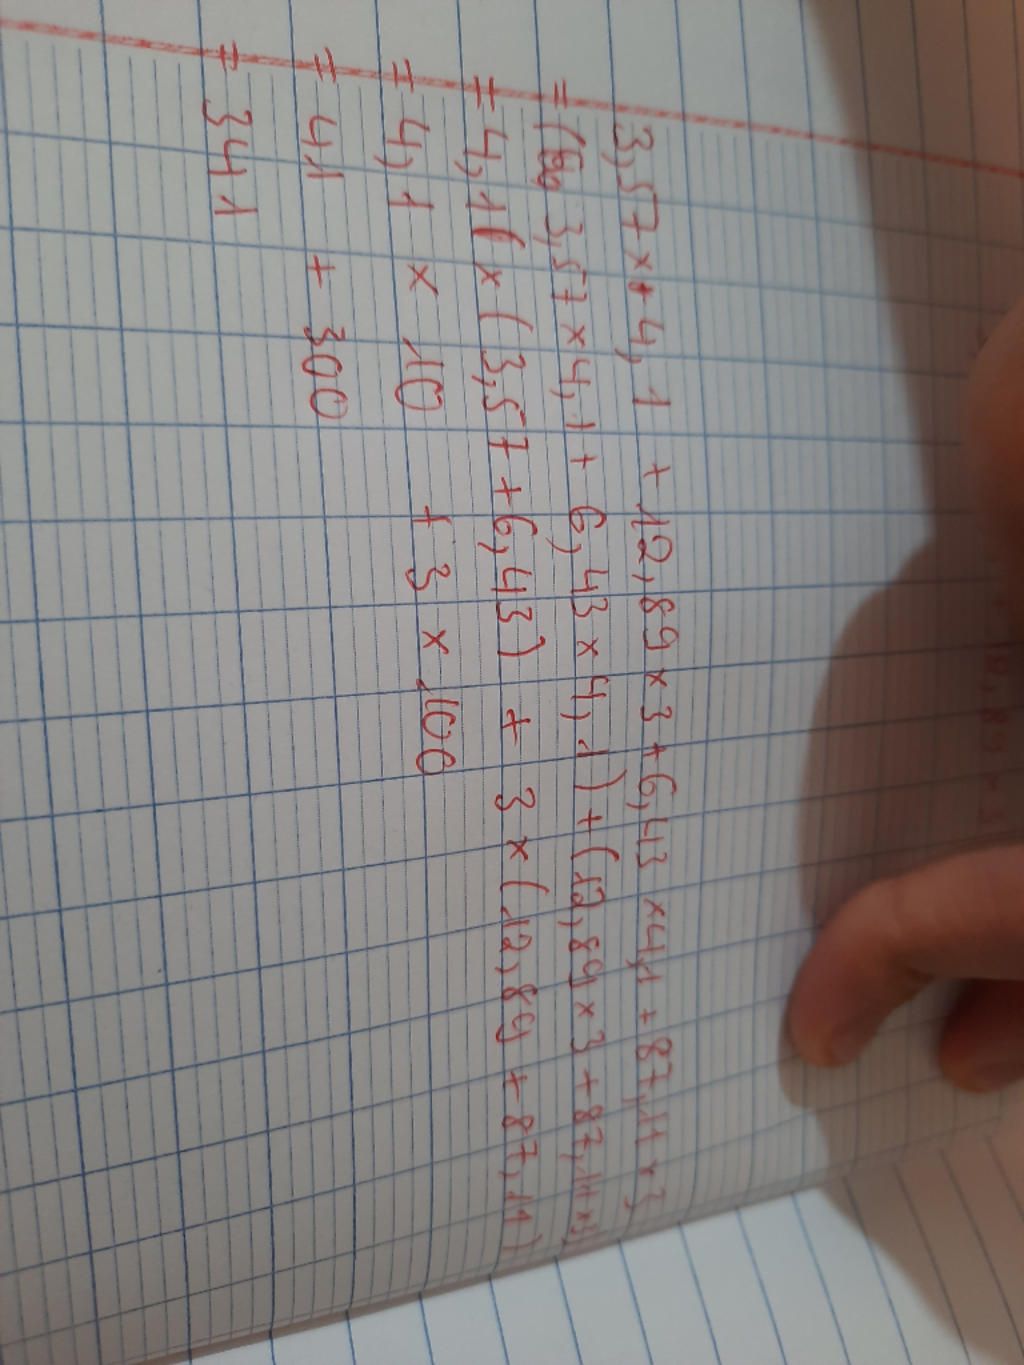 3,57 x 4,1 + 12,89 x 3 + 6,43 x 4,1 + 87,11 x 3
= ( 3,57 x 4,1 + 6,43 x 4,1 ) + (12,89 x 3 + 87,11 x 3)
= 4,1 x ( 3,57 + 6,43 ) + 3 x ( 12,89 + 87,11 )
= 4,1 x 10 + 3 x 100
= 41 + 300
= 341